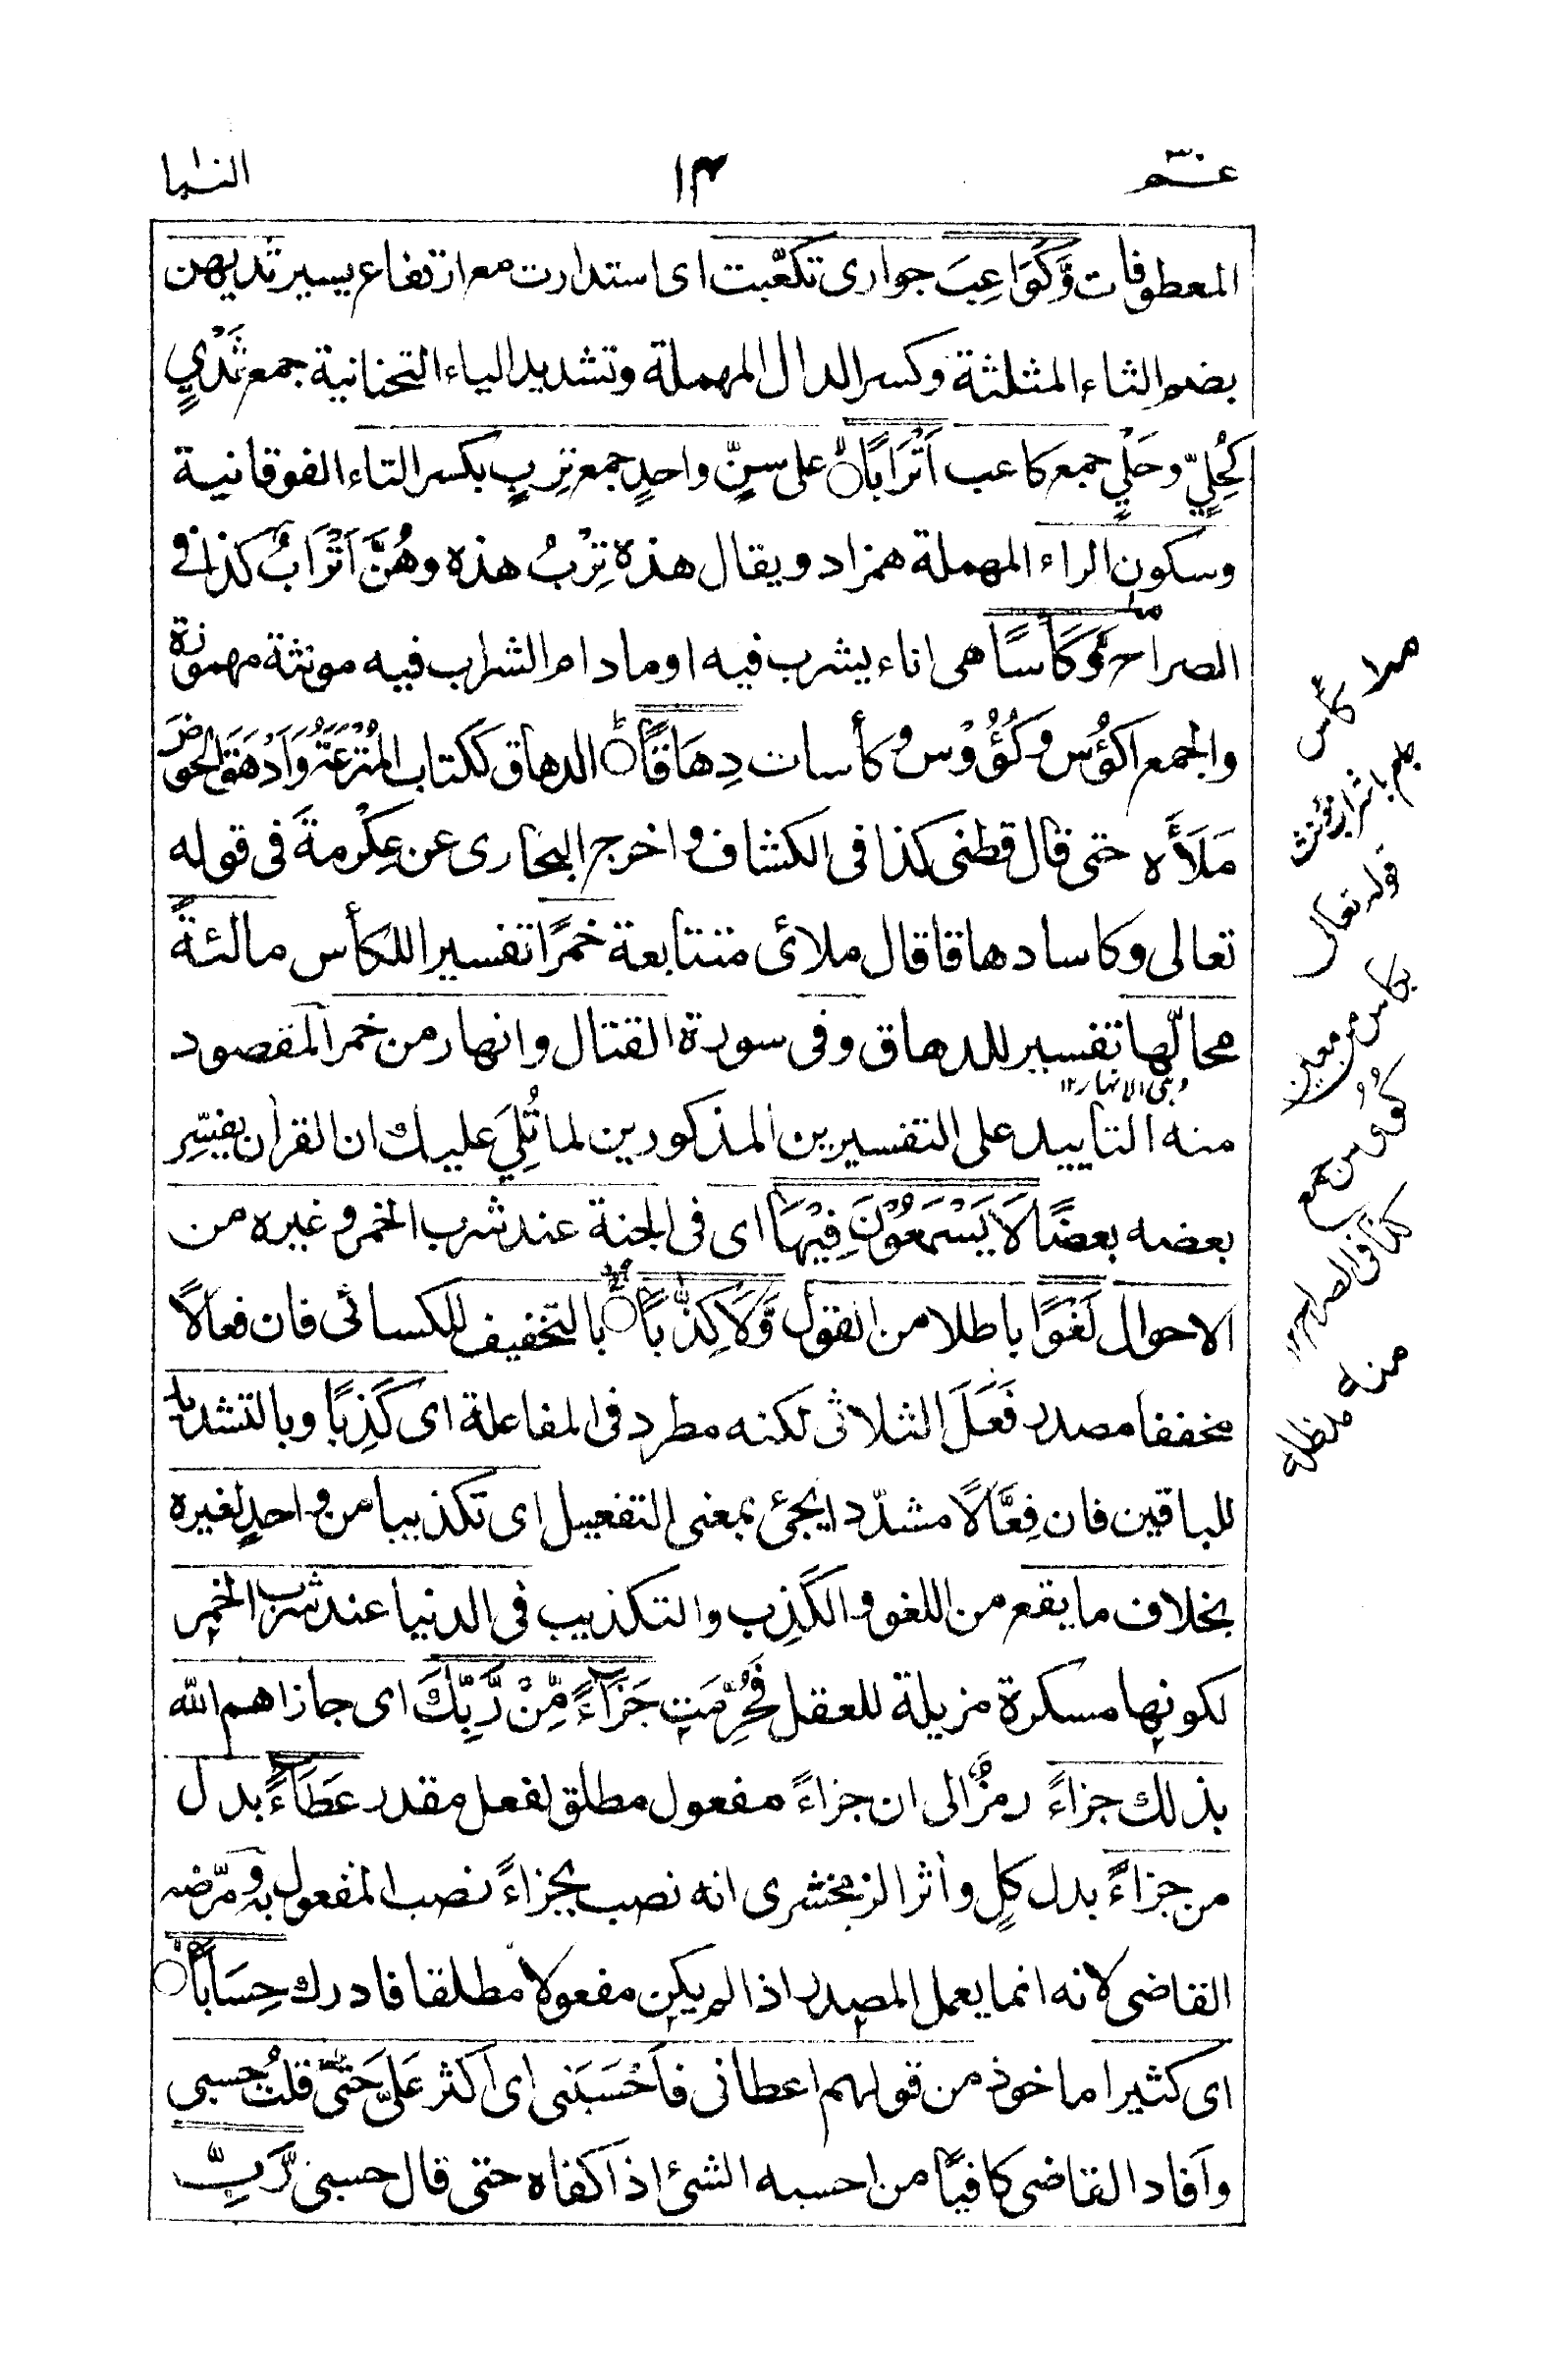 عمّ
١٣
النبإ
المعطوفات وَّكَوَاعِبَ جواری تکعّبت ای استدارت مع ارتفاع یسیر ثدیهن
بضم الثاء المثلثة وکسر الدال المهملة وتشدید الیاء التحتانیة جمع ثَدْيٍ
کَحُلِيّ وحَلْيٍ جمع کاعب اَتْرَابًا علی سنٍّ واحدٍ جمع تِربٍ بکسر التاء الفوقانیة
وسکون الراء المهملة همزاد ویقال هذه تِرْبُ هذه وهُنَّ اَتْرَابٌ کذا فی
الصراح وَّكَأْسًا هی اناء یشرب فیه او ما دام الشراب فیه مونثة مهموزة
والجمع اکؤس وکُؤُوْس وکأسات دِهَاقًا الدهاق ککتاب المُتْرَعَةُ وَاَدْهَقَ الحوضَ
مَلَأَه حتی قال قطنی کذا فی الکشاف واخرج البخاری عن عِکْرمةَ فی قوله
تعالی وکاسا دهاقا قال ملائ متتابعة خمرًا تفسیر اللکأس مالئةً
محالّها تفسیر للدهاق وفی سورة القتال وانهار من خمر المقصود
وهی الانهار ١٢
منه التایید علی التفسیرین المذکورین لما تُلِيَ علیك ان القرآن یفسِّر
بعضه بعضًا لَا يَسْمَعُوْنَ فِيْهَا ای فی الجنة عند شرب الخمر وغیره من
الاحوال لَغْوًا باطلا من القول وَّلَا كِذّٰبًا بالتخفیف للکسائی فان فعالًا
مخففا مصدر فَعَلَ الثلاثی لکنه مطرد فی المفاعلة ای کَذِبًا وبالتشدید
للباقین فان فِعَّالًا مشدّدا یجئ بمعنی التفعیل ای تکذیبا من واحدٍ لغیره
بخلاف ما یقع من اللغو والکَذِب والتکذیب فی الدنیا عند شرب الخمر
لکونها مسکرة مزیلة للعقل فَحُرِّمَت جَزَآءً مِّنْ رَّبِّكَ ای جازاهم الله
بذلك جزاءً رمزٌ الی ان جزاءً مفعول مطلق لفعل مقدر عَطَآءً بدل
من جزاءً بدل کلٍ وأثر الزمخشری انه نصب بجزاءً نصب المفعول به ومرّضه
القاضی لانه انما یعمل المصدر اذا لم یکن مفعولا مطلقا فادرك حِسَابًا
ای کثیرا ماخوذ من قولهم اعطانی فاَحْسَبَنی ای اکثر عَلَيَّ حَتّٰی قلتُ حسبی
وأفاد القاضی کافیًا من احسبه الشئ اذا کفاه حتی قال حسبی رَّبِّ
کأس
قوله تعالی
بکأس من معین
کؤوس جمع
کذا فی الصراح ١٢
منه مدظله